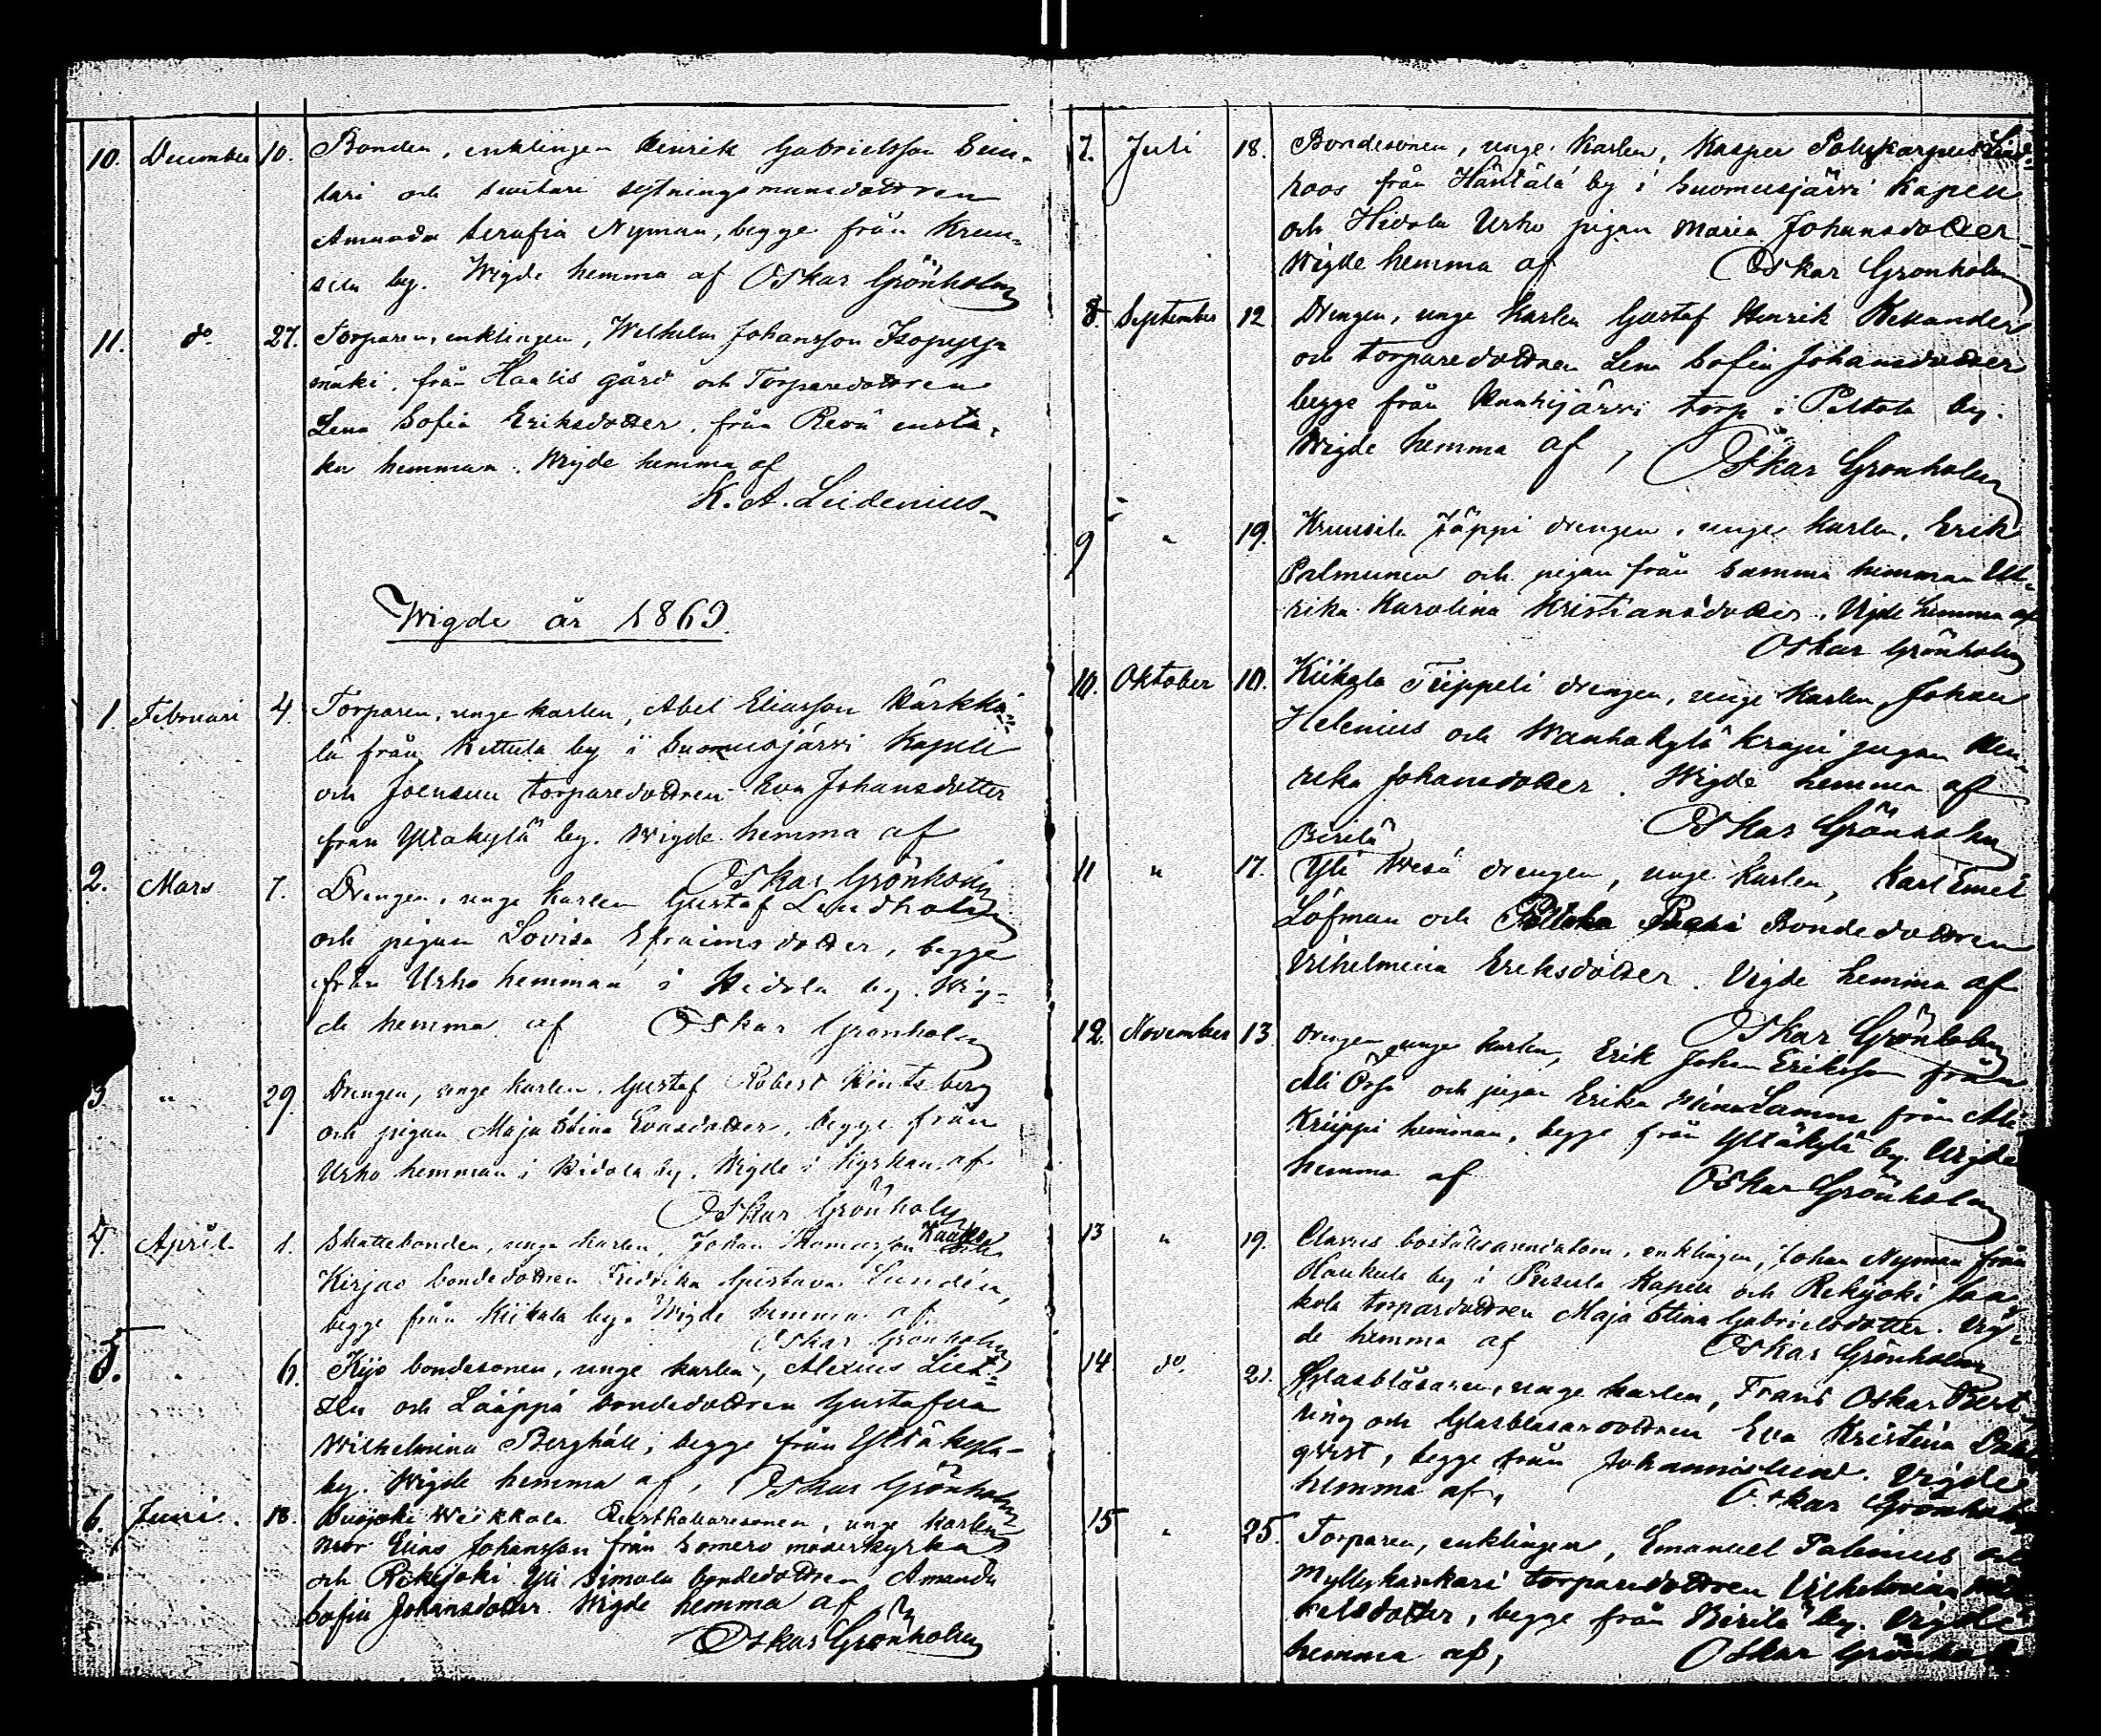 10. December 10. Bonden, enklingen Henrik Gabrielsson Suu-
tari och Suutari sytningsmansdottren
Amanda Serafia Nyman, begge från Kruu-
sila by. Wigde hemma af Oskar Grönholm
11. do. 27. Torparen, enklingen, Wilhelm Johansson Isopyyn
mäki, från Haalis gård och Torparedottren
Lena Sofia Eriksdotter, från Revä ensta-
ka hemman. Wigde hemma af
K. A. Lidenius
Wigde år 1869.
1. Februari 4. Torparen, unge karlen, Abel Eliasson Kärkkä-
lä från Kettula by i Suomusjärvi Kapell
och Joensuu torparedottren Eva Johansdotter
från Yltäkylä by. Wigde hemma af
Oskar Grönholm
2. Mars 7. Drengen, unge karlen Gustaf Lindholm
och pigan Lovisa Efraimsdotter, begge
från Urho hemman i Hidola by. Wig-
de hemma af Oskar Grönholm
3 " 29. Drengen, unge karlen, Gustaf Robert
och pigan Maja Stina Evasdotter, begge från
Urho hemman i Hidola by. Wigde i Kyrkan af
Oskar Grönholm
4. April 1. Skattebonden, unge karlen, Johan Thomasson
Kirjas bondedottren Fredrika Gustava Lundén,
begge från Kiikala by. Wigde hemma af
Oskar Grönholm
5. " 6. Kyö bondesonen, unge karlen, Alexius Liet-
zén och Lääppä bondedottren Gustafva
Wilhelmina Berghäll, begge från Yltäkylä
by. Wigde hemma af, Oskar Grönholm
6. Juni. 18. Suojoki Weikkola Rusthollaresonen, unge karlen
Elias Johansson från Somero moderkyrka
och Rekijoki Yli Simola bondedottren Amanda
Sofia Johansdotter. Wigde hemma af
Oskar Grönholm
7. Juli 18. Bondesonen, unge karlen, Kasper Polykarpus Lind-
roos från Häntälä by i Suomusjärvi Kapell
och Hidola Urho pigan Maria Johansdotter
Wigde hemma af Oskar Grönholm
8. September 12 Drengen, unge karlen Gustaf Henrik Wekander
och torparedottren Lena Sofia Johansdotter
begge från torp i Peltola by.
Wigde hemma af, Oskar Grönholm
9 " 19. Kruusila Jäppi drengen, unge karlen, Erik
Palmunen och pigan från samma hemman Ul-
rika Karolina Kristiansdotter. Vigde hemma af
Oskar Grönholm
10. Oktober 10. Kiikala Trippeli drengen, unge karlen, Johan
Helenius och Wanhakylä Krapi pigan Hen-
rika Johansdotter. Wigde hemma af
Oskar Grönholm
Pirilä
11 " 17. Yli Wesa drengen, unge karlen, Karl Emil
Löfman och Peltola Bondedottren
Vilhelmina Eriksdotter. Vigde hemma af
Oskar Grönholm
12. November 13. Drengen unge karlen, Erik Johan Eriksson från
Ali och pigan Erika Mina Lamm från Ali
Kriippi hemman, begge från Yltäkylä by. Wigde
hemma af Oskar Grönholm
13 " 19. boställsarrendatorn, enklingen, Johan Nyman från
Haukula by i Pusula Kapell och Rekijoki Jaa-
kola torpardottren Maja Stina Gabrielsdotter. Vig-
de hemma af Oskar Grönholm
14. do. 21. Glasblåsaren, unge karlen, Frans Oskar
ring och Glasblåsardottren Eva Kristina
qvist, begge från Johannislund. Vigde
hemma af, Oskar Grönholm
15 " 25. Torparen, enklingen, Emanuel Palenius och
Myllykankari torparedottren Vilhelmina Mi-
kelsdotter, begge från Pirilä by. Vigde
hemma af, Oskar Grönholm